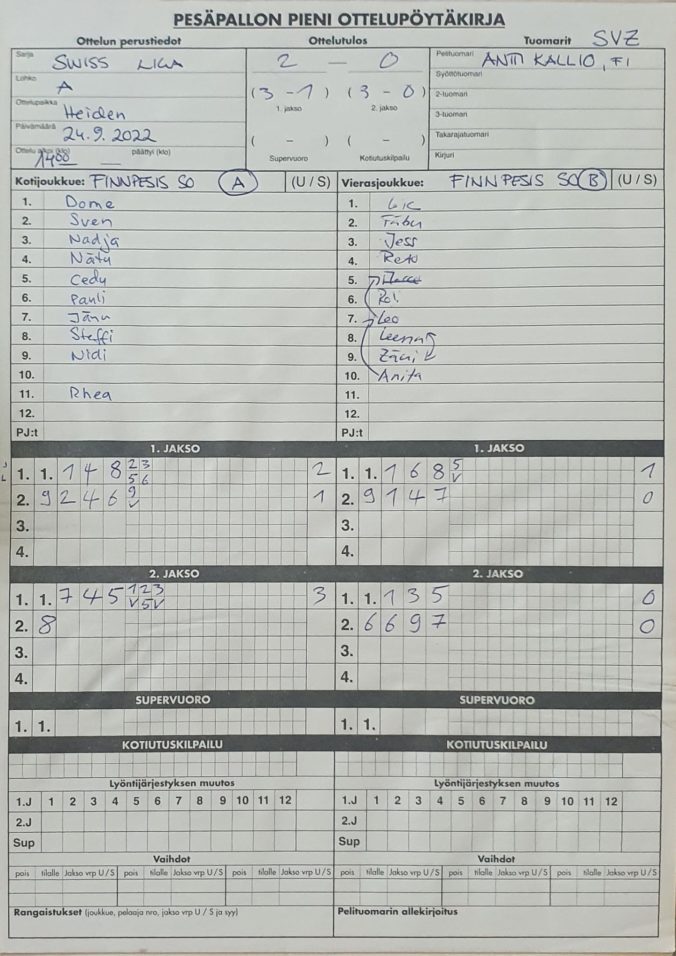 PESÄPALLON PIENI OTTELUPÖYTÄKIRJA
Ottelun perustiedot
Ottelutulos
Tuomarit SVZ
Sarja SWISS LIGA
Lohko A
Ottelupaikka Heiden
Päivämäärä 24.9.2022
Ottelu alkoi (klo) 1400 päättyi (klo) —
2 — 0
(3 - 1) (3 - 0)
1. jakso 2. jakso
( - ) ( - )
Supervuoro Kotiutuskilpailu
Pelituomari ANTTI KALLIO, FI
Syöttötuomari
2-tuomari
3-tuomari
Takarajatuomari
Kirjuri
Kotijoukkue: FINNPESIS SO A (U / S)
1. Dome
2. Sven
3. Nadja
4. Nätu
5. Cedy
6. Pauli
7. Jänu
8. Steffi
9. Nidi
10.
11. Rhea
12.
PJ:t
Vierasjoukkue: FINNPESIS SO B (U / S)
1.
2. Fäbu
3. Jess
4. Reto
5.
6. Roli
7. Leo
8. Leena
9. Zämi
10. Anita
11.
12.
PJ:t
1. JAKSO
1. 1. 1 4 8 2 3 5 6 2
2. 9 2 4 6 9 V 1
3.
4.
1. JAKSO
1. 1. 1 6 8 5 V 1
2. 9 1 4 7 0
3.
4.
2. JAKSO
1. 1. 7 4 5 1 2 3 V 5 V 3
2. 8
3.
4.
2. JAKSO
1. 1. 1 3 5 0
2. 6 6 9 7 0
3.
4.
SUPERVUORO
1. 1.
SUPERVUORO
1. 1.
KOTIUTUSKILPAILU
KOTIUTUSKILPAILU
Lyöntijärjestyksen muutos
1.J 1 2 3 4 5 6 7 8 9 10 11 12
2.J
Sup
Lyöntijärjestyksen muutos
1.J 1 2 3 4 5 6 7 8 9 10 11 12
2.J
Sup
Vaihdot
pois tilalle Jakso vrp U / S pois tilalle Jakso vrp U / S pois tilalle Jakso vrp U / S
Vaihdot
pois tilalle Jakso vrp U / S pois tilalle Jakso vrp U / S pois tilalle Jakso vrp U / S
Rangaistukset (joukkue, pelaaja nro, jakso vrp U / S ja syy)
Pelituomarin allekirjoitus